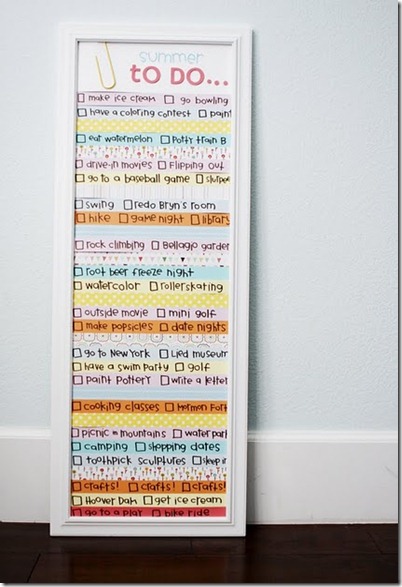 summer
to do...
make ice cream go bowling
have a coloring contest paint
eat watermelon Potty train B
drive-in movies Flipping out
go to a baseball game slurpee
swing redo Bryn's room
hike game night library
rock climbing Bellagio garden
root beer freeze night
watercolor rollerskating
outside movie mini golf
make popsicles date nights
go to New York Lied museum
have a swim party golf
paint Pottery write a letter
cooking classes Mormon Fort
picnic = mountains water park
camping shopping dates
toothpick sculptures sleep
crafts! crafts! crafts!
Hoover Dam get ice cream
go to a play bike ride